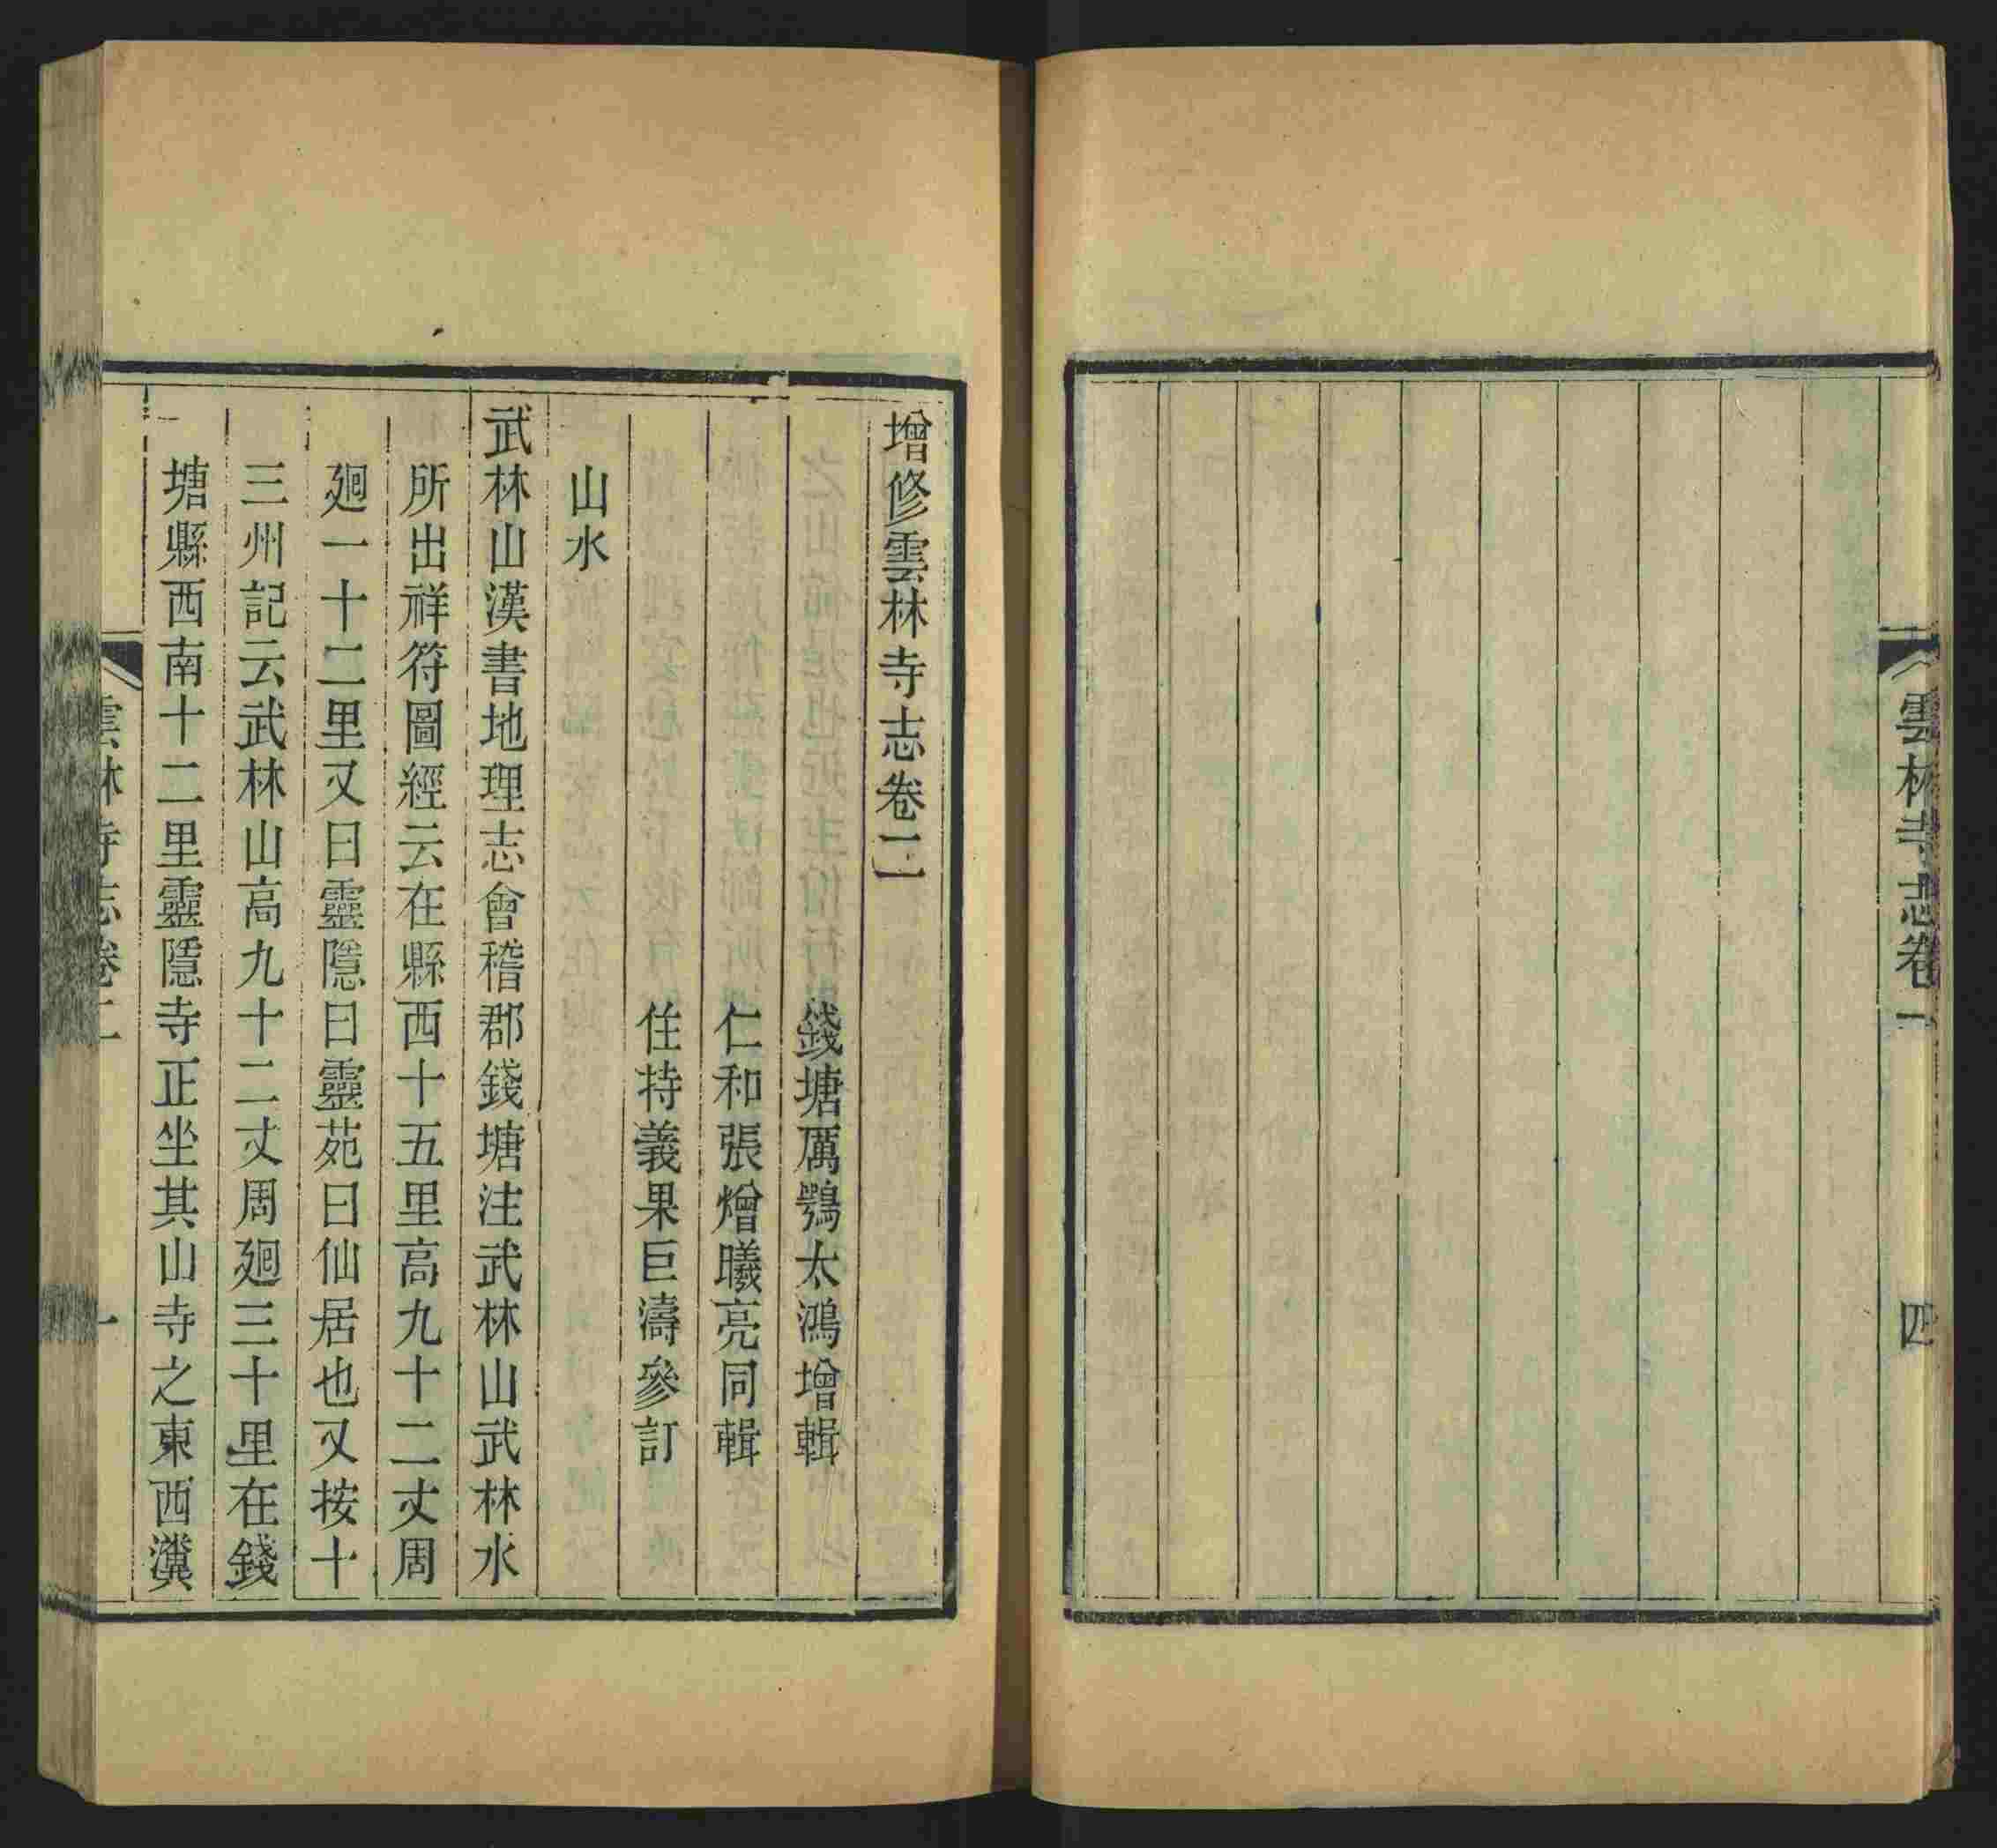 雲林寺志卷一
四
增修雲林寺志卷二
錢塘厲鶚太鴻增輯
仁和張熷曦亮同輯
住持義果巨濤參訂
山水
武林山漢書地理志會稽郡錢塘注武林山武林水
所出祥符圖經云在縣西十五里高九十二丈周
廻一十二里又曰靈隱曰靈苑曰仙居也又按十
三州記云武林山高九十二丈周廻三十里在錢
塘縣西南十二里靈隱寺正坐其山寺之東西瀵
雲林寺志卷二
一